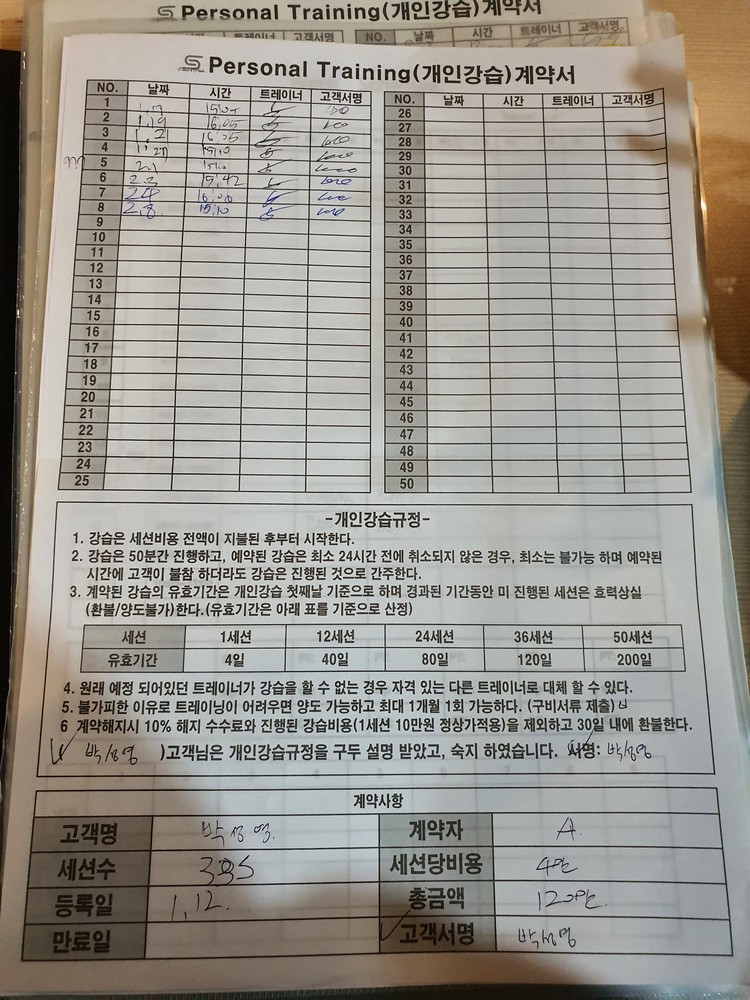 Personal Training(개인강습)계약서
트레이너 고객서명 NO. 날짜 시간 트레이너 고객서명
Personal Training(개인강습)계약서
NO. 날짜 시간 트레이너 고객서명
1 1.17
2 1.19 16:05
3 1.21 16:05
4 1.27 15:10
5 2.1 15:10
6 2.3 15:42
7 2.4 16:00
8 2.8 15:10
9
10
11
12
13
14
15
16
17
18
19
20
21
22
23
24
25
NO. 날짜 시간 트레이너 고객서명
26
27
28
29
30
31
32
33
34
35
36
37
38
39
40
41
42
43
44
45
46
47
48
49
50
-개인강습규정-
1. 강습은 세션비용 전액이 지불된 후부터 시작한다.
2. 강습은 50분간 진행하고, 예약된 강습은 최소 24시간 전에 취소되지 않은 경우, 최소는 불가능 하며 예약된
시간에 고객이 불참 하더라도 강습은 진행된 것으로 간주한다.
3. 계약된 강습의 유효기간은 개인강습 첫째날 기준으로 하며 경과된 기간동안 미 진행된 세션은 효력상실
(환불/양도불가)한다.(유효기간은 아래 표를 기준으로 산정)
세션 1세션 12세션 24세션 36세션 50세션
유효기간 4일 40일 80일 120일 200일
4. 원래 예정 되어있던 트레이너가 강습을 할 수 없는 경우 자격 있는 다른 트레이너로 대체 할 수 있다.
5. 불가피한 이유로 트레이닝이 어려우면 양도 가능하고 최대 1개월 1회 가능하다. (구비서류 제출)
6 계약해지시 10% 해지 수수료와 진행된 강습비용(1세션 10만원 정상가적용)을 제외하고 30일 내에 환불한다.
)고객님은 개인강습규정을 구두 설명 받았고, 숙지 하였습니다. 서명:
계약사항
고객명 계약자 A
세션수 세션당비용 4만
등록일 1.12. 총금액 120만
만료일 고객서명